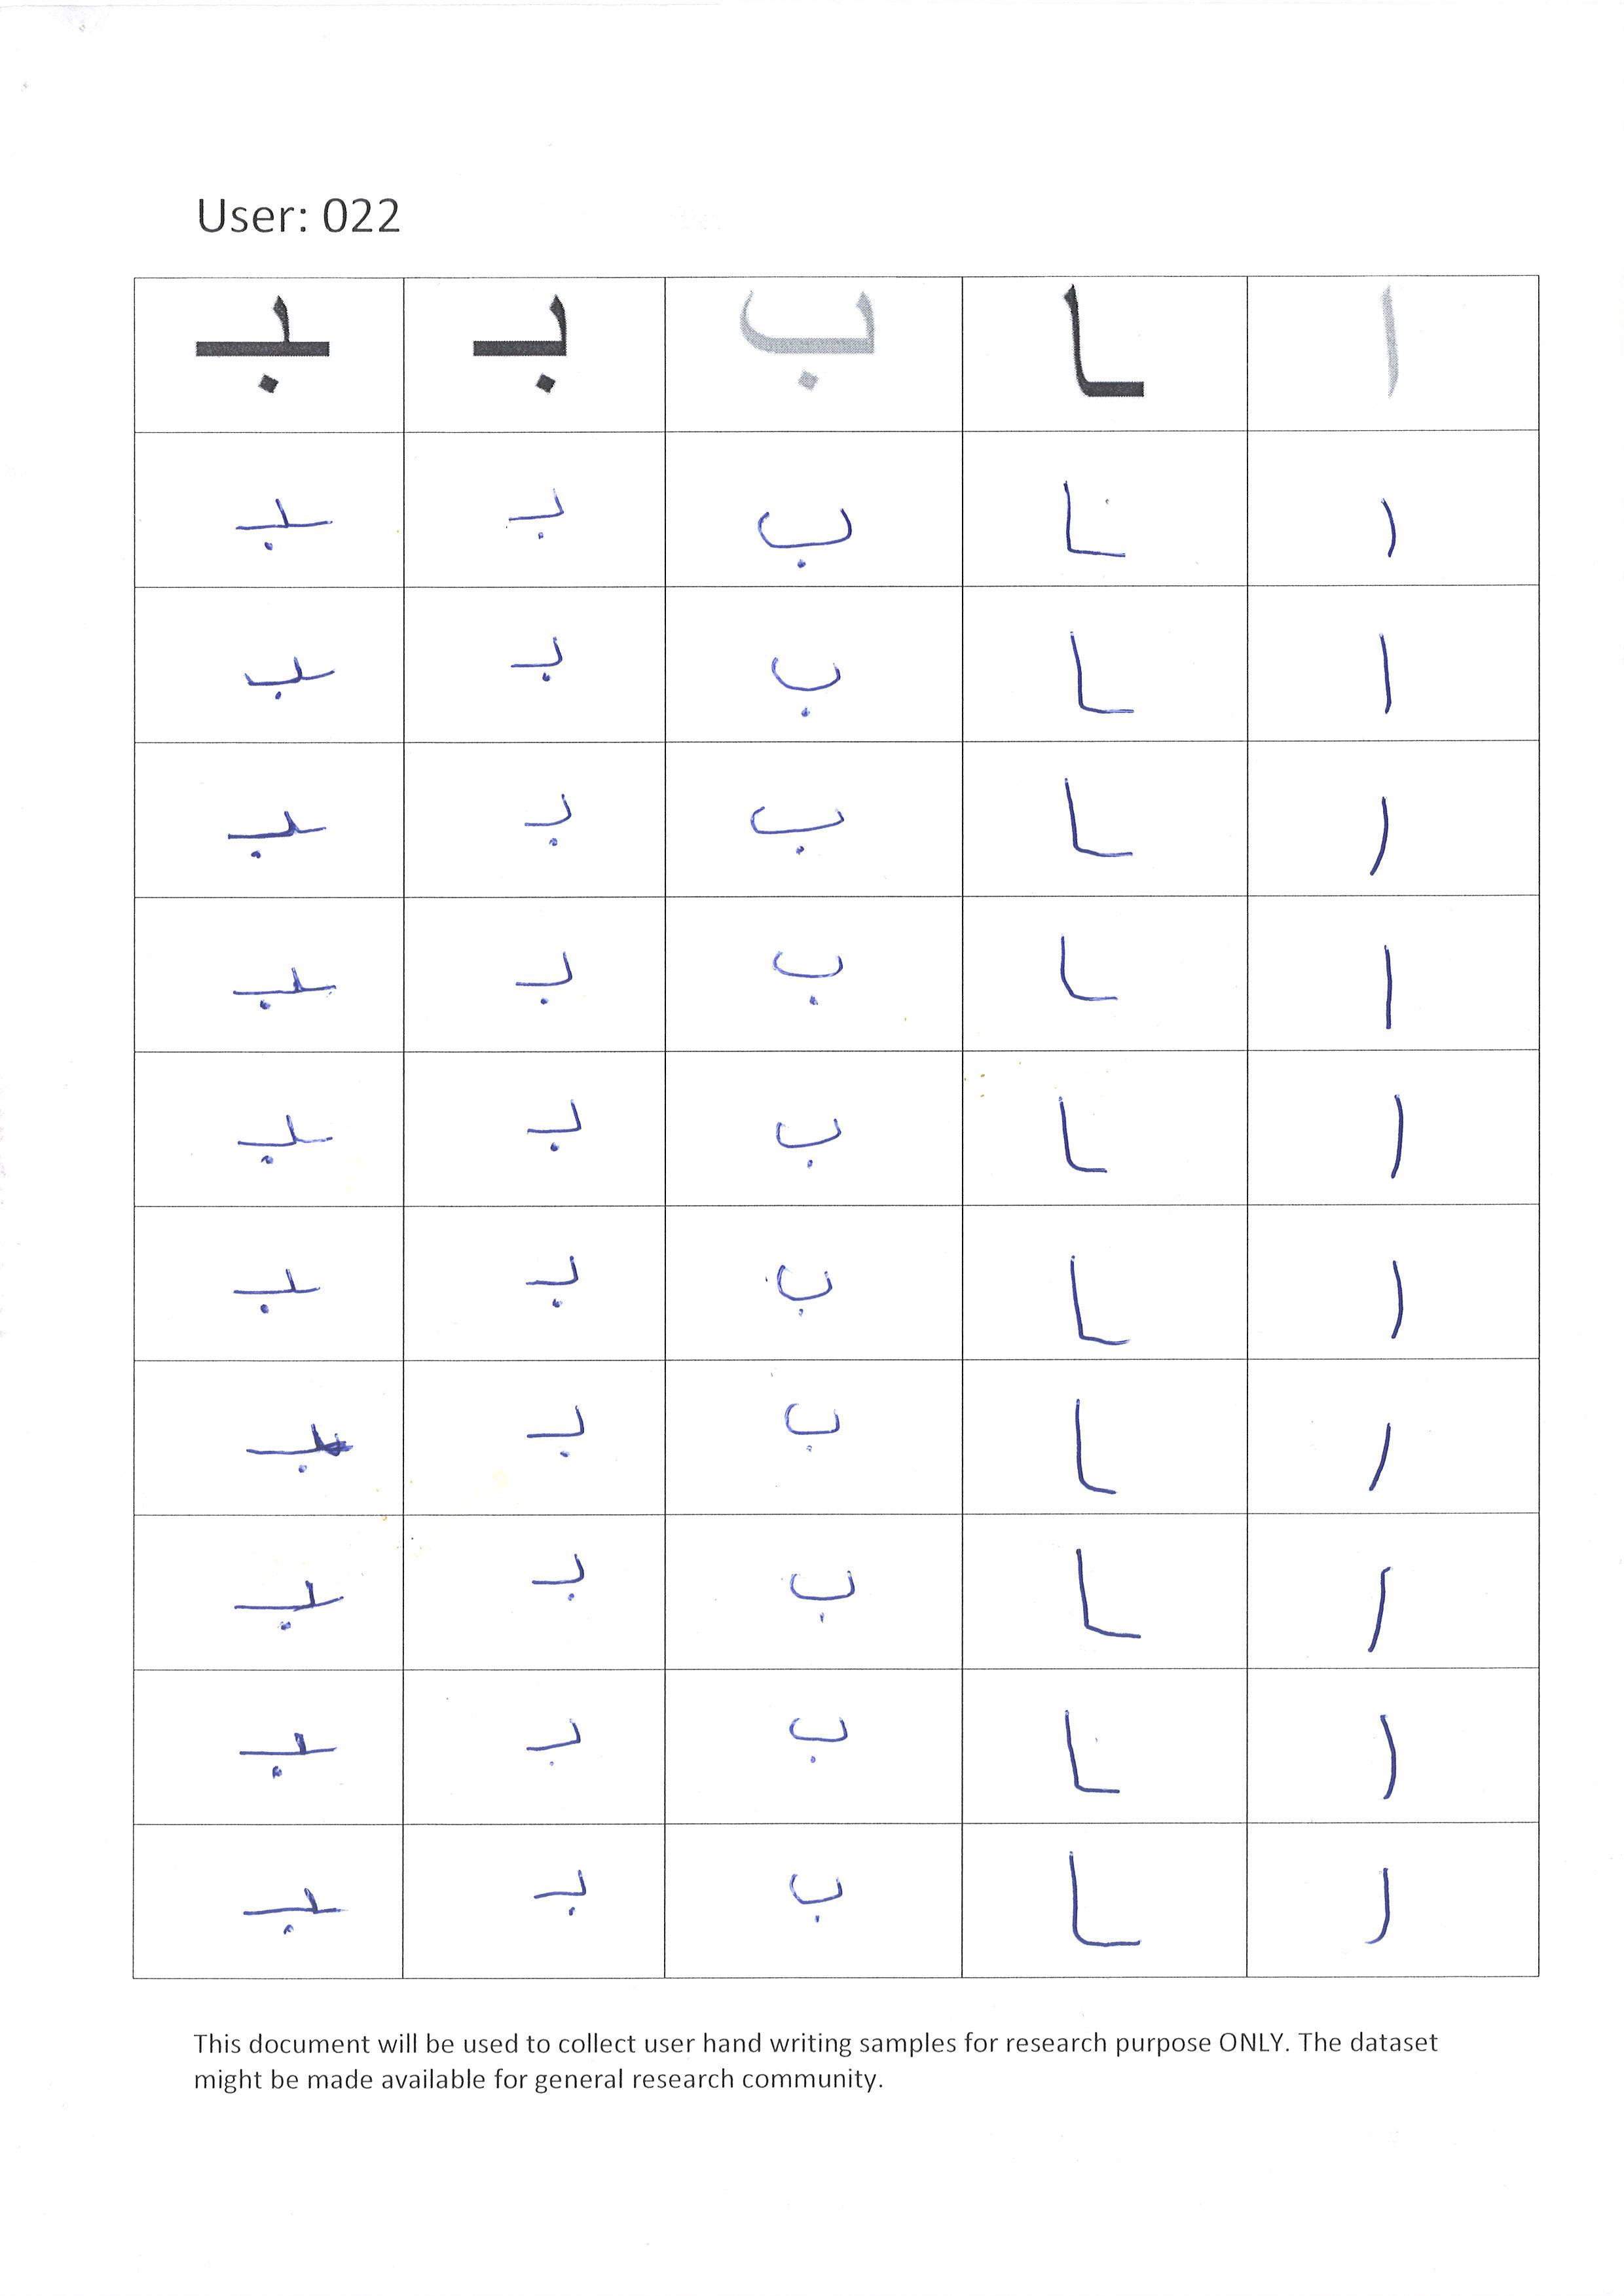 User: 022
ا ـا ب بـ ـبـ
ا ـا ب بـ ـبـ
ا ـا ب بـ ـبـ
ا ـا ب بـ ـبـ
ا ـا ب بـ ـبـ
ا ـا ب بـ ـبـ
ا ـا ب بـ ـبـ
ا ـا ب بـ ـبـ
ا ـا ب بـ ـبـ
ا ـا ب بـ ـبـ
ا ـا ب بـ ـبـ
This document will be used to collect user hand writing samples for research purpose ONLY. The dataset
might be made available for general research community.